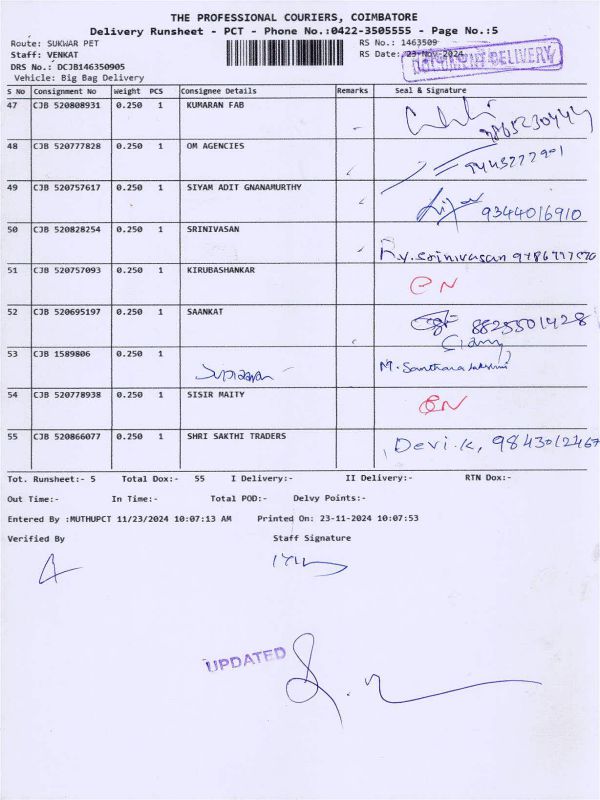 THE PROFESSIONAL COURIERS, COIMBATORE
Delivery Runsheet - PCT - Phone No.:0422-3505555 - Page No.:5
Route: SUKWAR PET RS No.: 1463509
Staff: VENKAT RS Date: 23-Nov-2024
DRS No.: DCJB146350905
DOCUMENT DELIVERY
Vehicle: Big Bag Delivery
S No Consignment No Weight PCS Consignee Details Remarks Seal & Signature
47 CJB 520808931 0.250 1 KUMARAN FAB
48 CJB 520777828 0.250 1 OM AGENCIES
49 CJB 520757617 0.250 1 SIYAM ADIT GNANAMURTHY 9344016910
50 CJB 520828254 0.250 1 SRINIVASAN R.y.srinivasan
51 CJB 520757093 0.250 1 KIRUBASHANKAR
52 CJB 520695197 0.250 1 SAANKAT 8825501428
53 CJB 1589806 0.250 1 M. Santhana lakshmi
54 CJB 520778938 0.250 1 SISIR MAITY
55 CJB 520866077 0.250 1 SHRI SAKTHI TRADERS Devi.k, 9843012467
Tot. Runsheet:- 5 Total Dox:- 55 I Delivery:- II Delivery:- RTN Dox:-
Out Time:- In Time:- Total POD:- Delvy Points:-
Entered By :MUTHUPCT 11/23/2024 10:07:13 AM Printed On: 23-11-2024 10:07:53
Verified By Staff Signature
UPDATED